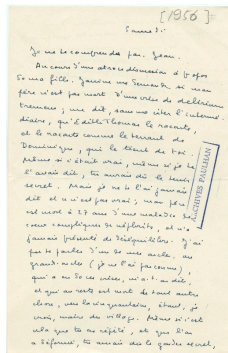 [1956]
Samedi
Je ne te comprends pas, Jean.
Au cours d'une atroce discussion à propos
de ma fille, Janine me demande si mon
père n'est pas mort d'une crise de delirium
tremens ; me dit, sans citer l'intermé-
diaire, qu'Edith Thomas le raconte,
et le raconte comme le tenant de
Dominique, qui le tient de toi.
Même si c'était vrai, même si je te
l'avais dit, tu aurais dû le tenir
secret. Mais je ne te l'ai jamais
dit et ce n'est pas vrai ; mon père
est mort à 27 ans d'une maladie de
coeur compliquée de néphrite, et n'a
jamais présenté de déséquilibre. J'ai
pu te parler d'un de mes
grands-
qui a eu des crises, m'a-t-on dit,
et qui au reste est mort de tout autre
chose, vers la cinquantaine, étant, je
crois, maire du village. Même si c'est
cela que tu as répété, et que l'on
a déformé, tu aurais dû garder secret,
ARCHIVES PAULHAN